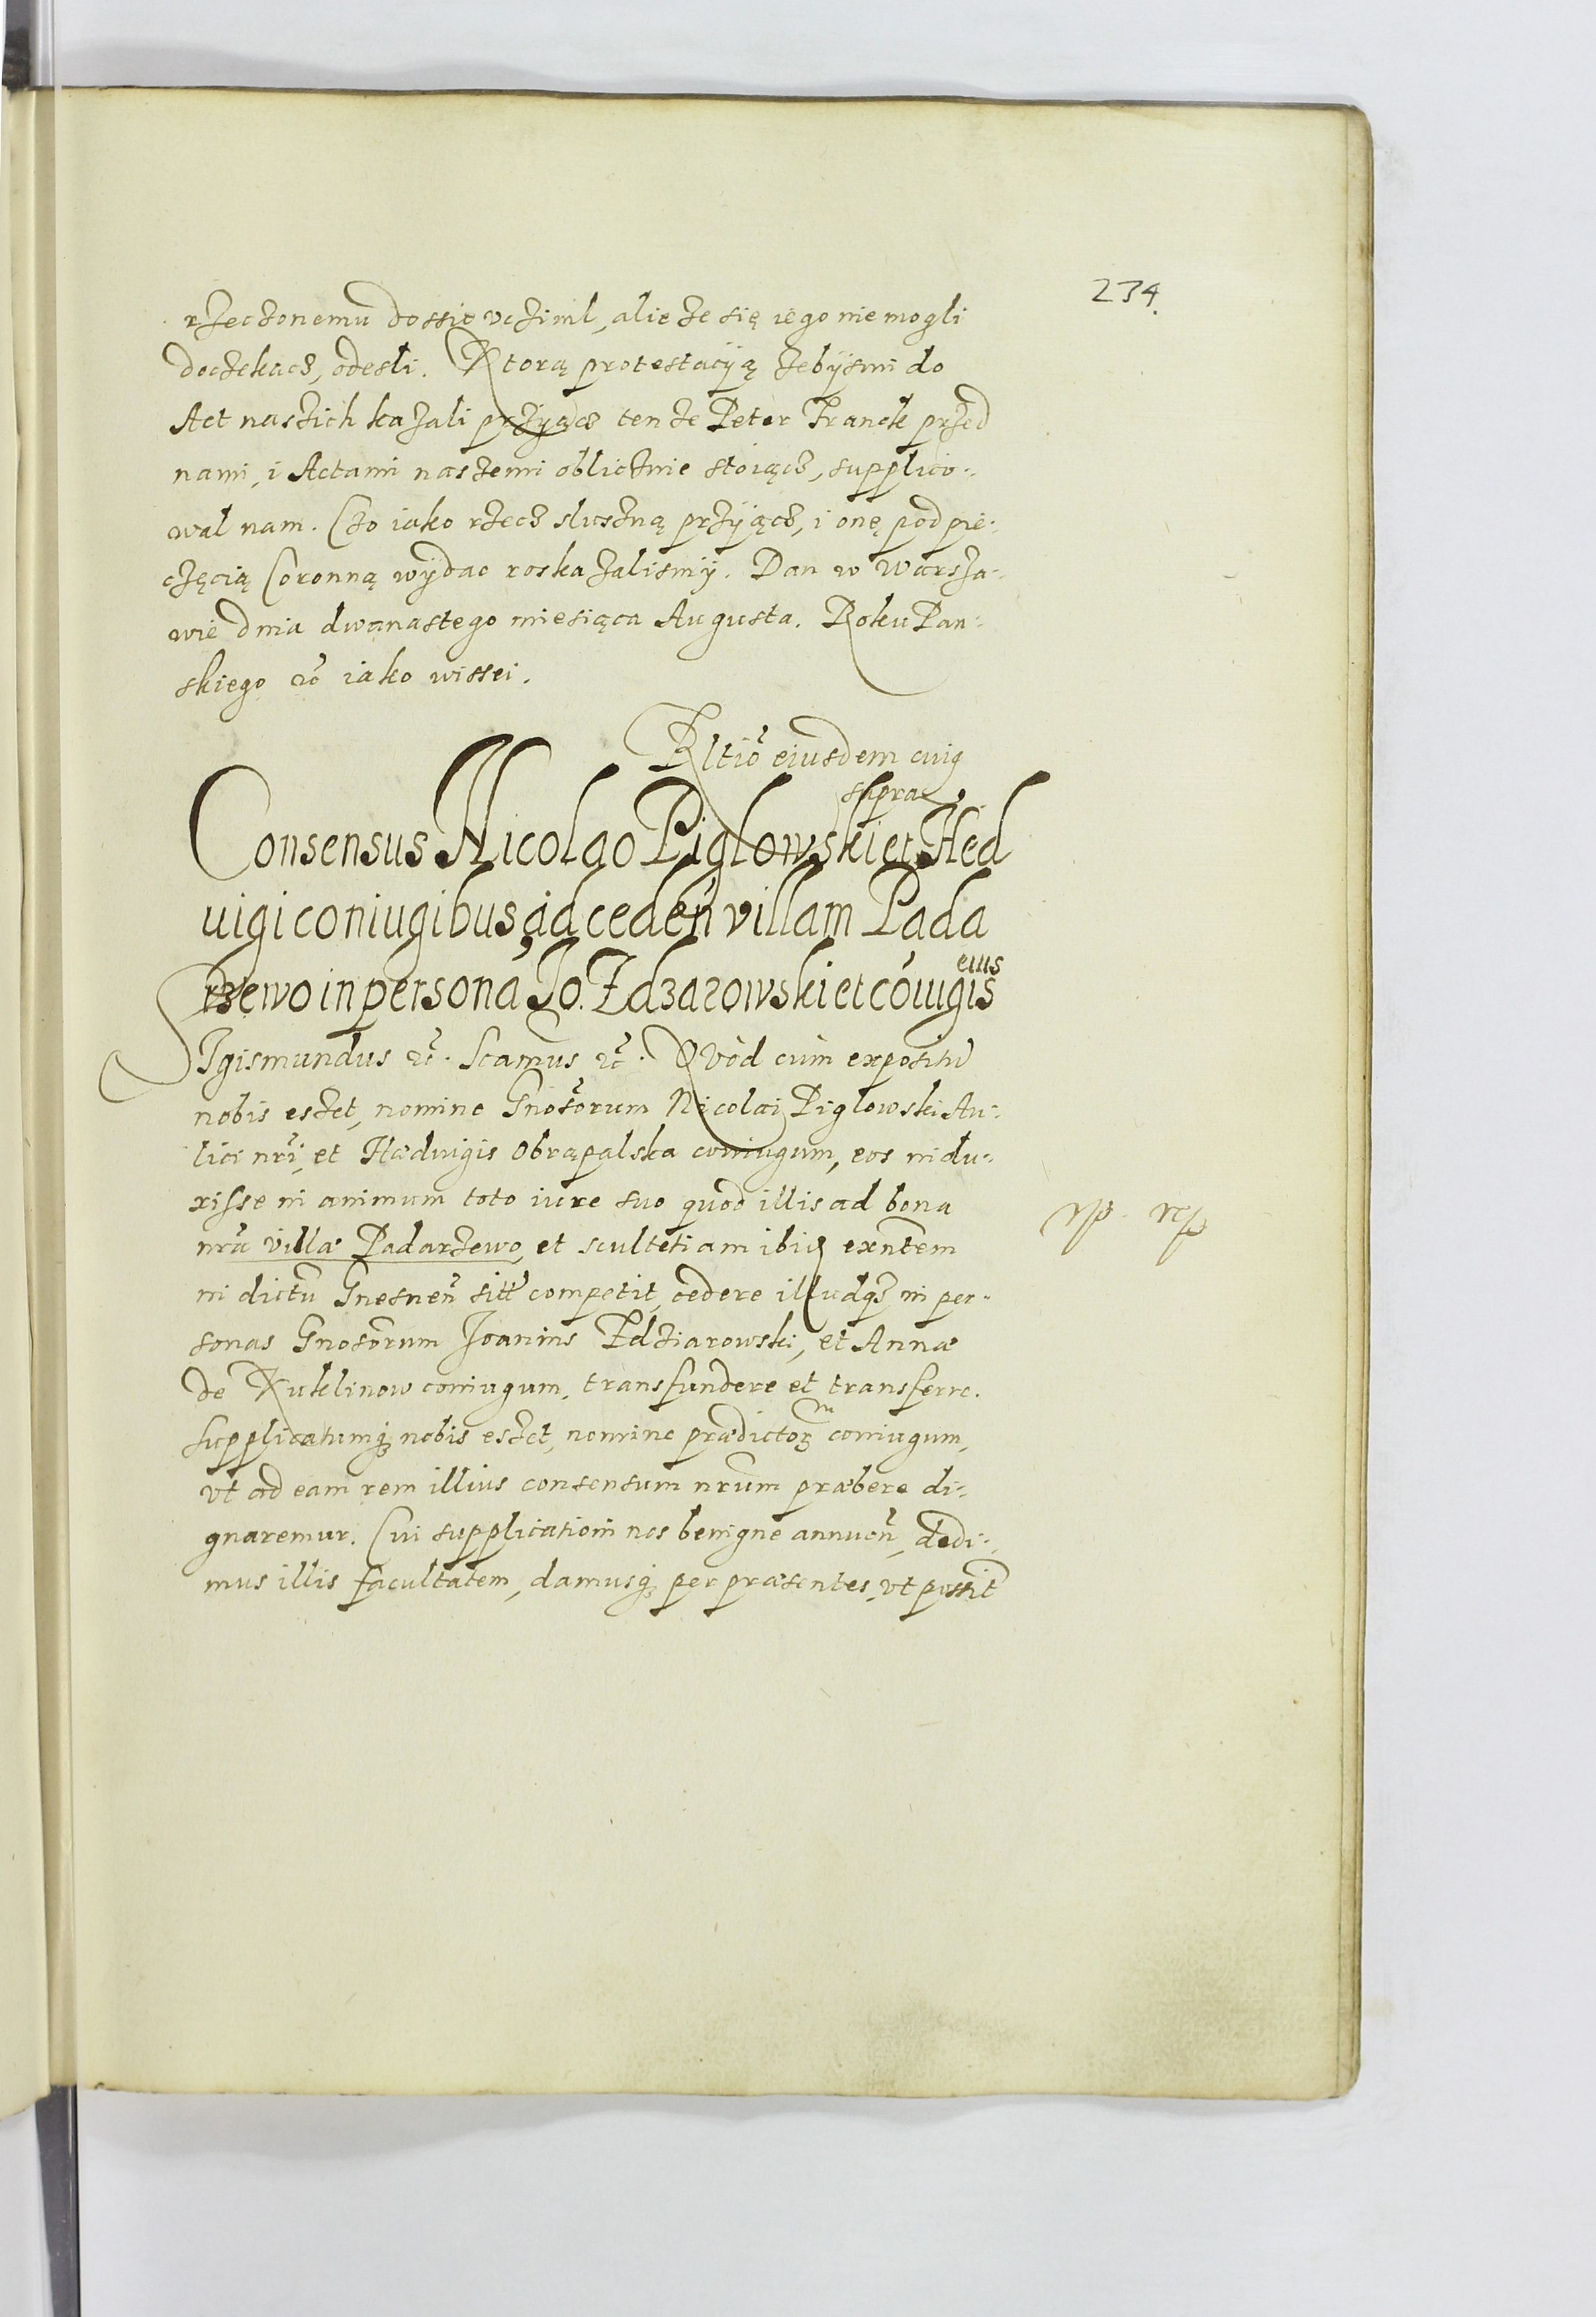 234.
rzeczonemu dossic vczinil, alie ze się iego nie mogli
doczekacz, odesli. Ktorą protestacyą zebysmi do
Act naszich kazali przyącz tenze Peter Franck przed
nami, i Actami naszemi oblicznie stoiącz, supplico-
wal nam. Czo iako rzecz sluszną przyiącz, i onę pod pie-
częcią Coronną wydac roskazalismy. Dan w Warsza-
wie dnia dwanastego miesiąca Augusta. Roku Pan-
skiego &c̃ iako wissei.
Rltio᷈ eiusdem cuiꝰ
supra
Consensus Nicolao Piglowski et Hed
uigi coniugibus, ad ceden᷈ villam Pada
rzewo in persona Jo. Zdzarowski et co᷈iugis eius
Sigismundus &c̃. Scamus &c̃. Quòd cum expositu᷈
nobis eszet, nomine Gnos᷈orum Nicolai Piglowski Au-
lici nr᷈i, et Hæduigis Obrąpalska coniugum, eos indu-
xisse in animum toto iure suo quod illis ad bona
nr᷈a villæ Padarzewo, et scultetiam ibiđ exn᷈tem
in dictu᷈ Gnesnen᷈ sitt᷈ competit, cedere illudqꝫ in per-
sonas Gnos᷈orum Joannis Zdziarowski, et Annæ
de Kuklinow coniugum, transfundere et transferre.
supplicatumqꝫ nobis eszet, nomine prædictoꝝ coniugum,
vt ad eam rem illius consensum nr᷈um præbere di-
gnaremur. Cui supplicationi nos benigne annuen᷈, dedi-
mus illis facultatem, damusqꝫ per præsentes, vt possit᷈